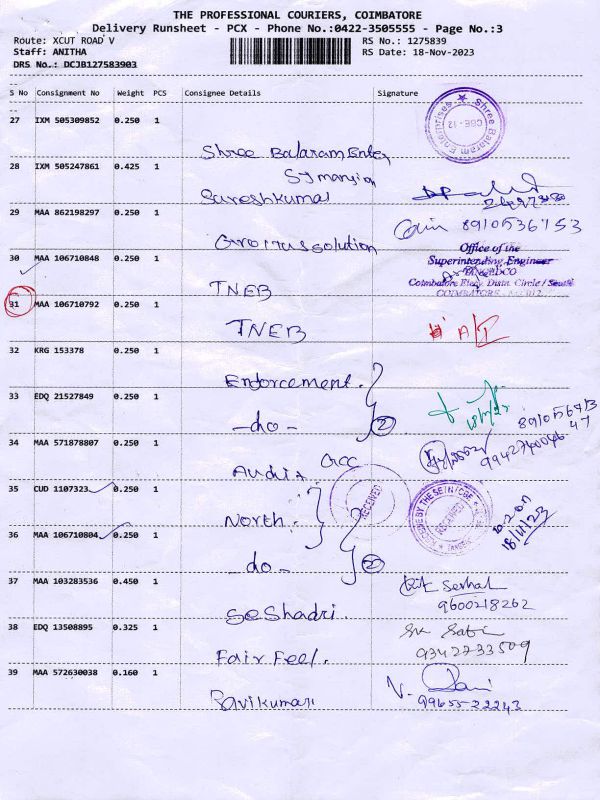 THE PROFESSIONAL COURIERS, COIMBATORE
Delivery Runsheet - PCX - Phone No.:0422-3505555 - Page No.:3
Route: XCUT ROAD V RS No.: 1275839
Staff: ANITHA RS Date: 18-Nov-2023
DRS No.: DCJB127583903
S No Consignment No Weight PCS Consignee Details Signature
27 IXM 505309852 0.250 1
Shree Balaram Enter
Shree Balaram Enterprises CBE-12
28 IXM 505247861 0.425 1
Symansion
Sureshkumar
29 MAA 862198297 0.250 1
8910536753
solution
30 MAA 106710848 0.250 1
Office of the
Superintending Engineer
TANGEDCO
Coimbatore Elecy. Distn. Circle / South
COIMBATORE
TNEB
31 MAA 106710792 0.250 1
TNEB
32 KRG 153378 0.250 1
Endorcement.
33 EDQ 21527849 0.250 1
-do- 2
34 MAA 571878807 0.250 1
Audit
35 CUD 1107323 0.250 1
North. RECEIVED RECEIVED
18/11/23
36 MAA 106710804 0.250 1
-do-
37 MAA 103283536 0.450 1
9600218262
Seshadri.
38 EDQ 13508895 0.325 1
9342733509
Fair Feel.
39 MAA 572630038 0.160 1
99655-22243
Ravikumar